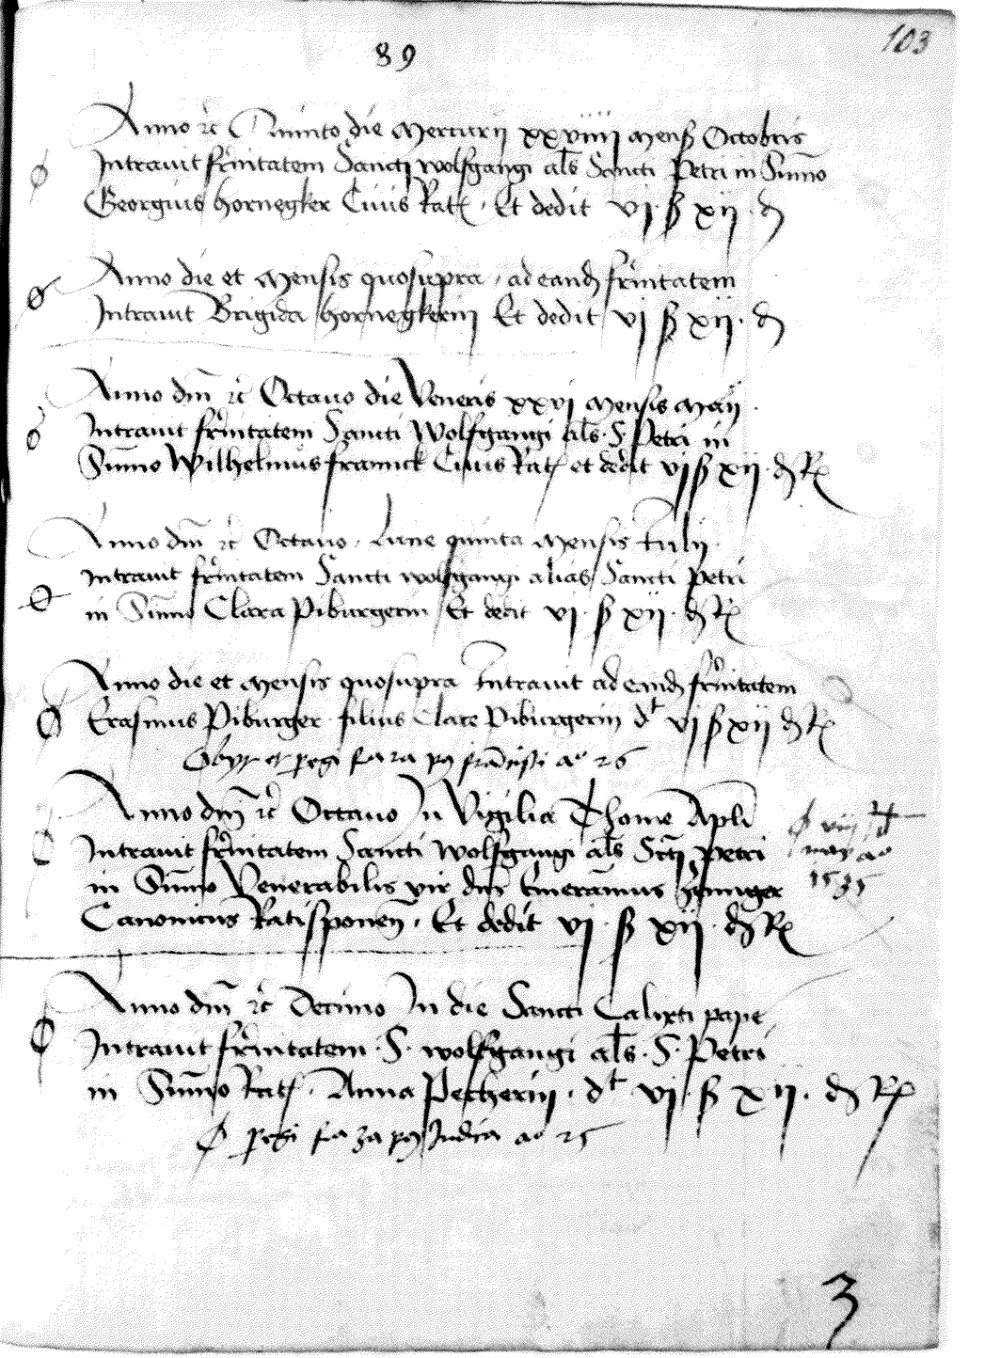 103
89
Anno etc Quinto die Mercurij xxviiij mens Octobris
Intravit frnitatem Sancti wolfgangi als Sancti Petri in Sum̄o
Georgius hornegker Civis Rat. Et dedit vj ß xij d
Anno die et Mensis quosupra, ad eand frnitatem
Intravit Brigida hornegkerin Et dedit vj ß xij. d
Anno dm̄ etc Octavo die Veneris xxvj Mensis Maij.
Intravit frnitatem Sancti Wolfgangi als. S. Petri in
Sum̄o Wilhelmus framck Civis Rat et dedit vj ß xij. d R
Anno dm̄ etc Octavo. Lune quinta Mensis Iulij
Intravit frnitatem Sancti wolfgangi alias Sancti Petri
in Sum̄o Clara Piburgerin Et dedit vj. ß xij. d R
Anno die et Mensis quosupra Intravit ad eand frnitatem
Erasmus Piburger filius Clare Piburgerin dt vj ß xij d R
Obyt et pegi fa 2a po frācisci ao 26
Anno dm̄ etc Octavo In Vigilia Thome Apli
Intravit frnitatem Sancti Wolfgangi als Scti Petri
in Sum̄o Venerabilis vir dns Emeramus
Canonicus Ratisponen, Et dedit vj. ß xij. d R
viij
may ao
1535
Anno dm̄ etc Decimo In die Sancti Calixti pape
Intravit frnitatem. S. wolfgangi als. S. Petri
in Sum̄o Rat. Anna Pecherin. dt vj. ß xij. d R
pegi fa 3a po Judica ao 25
3